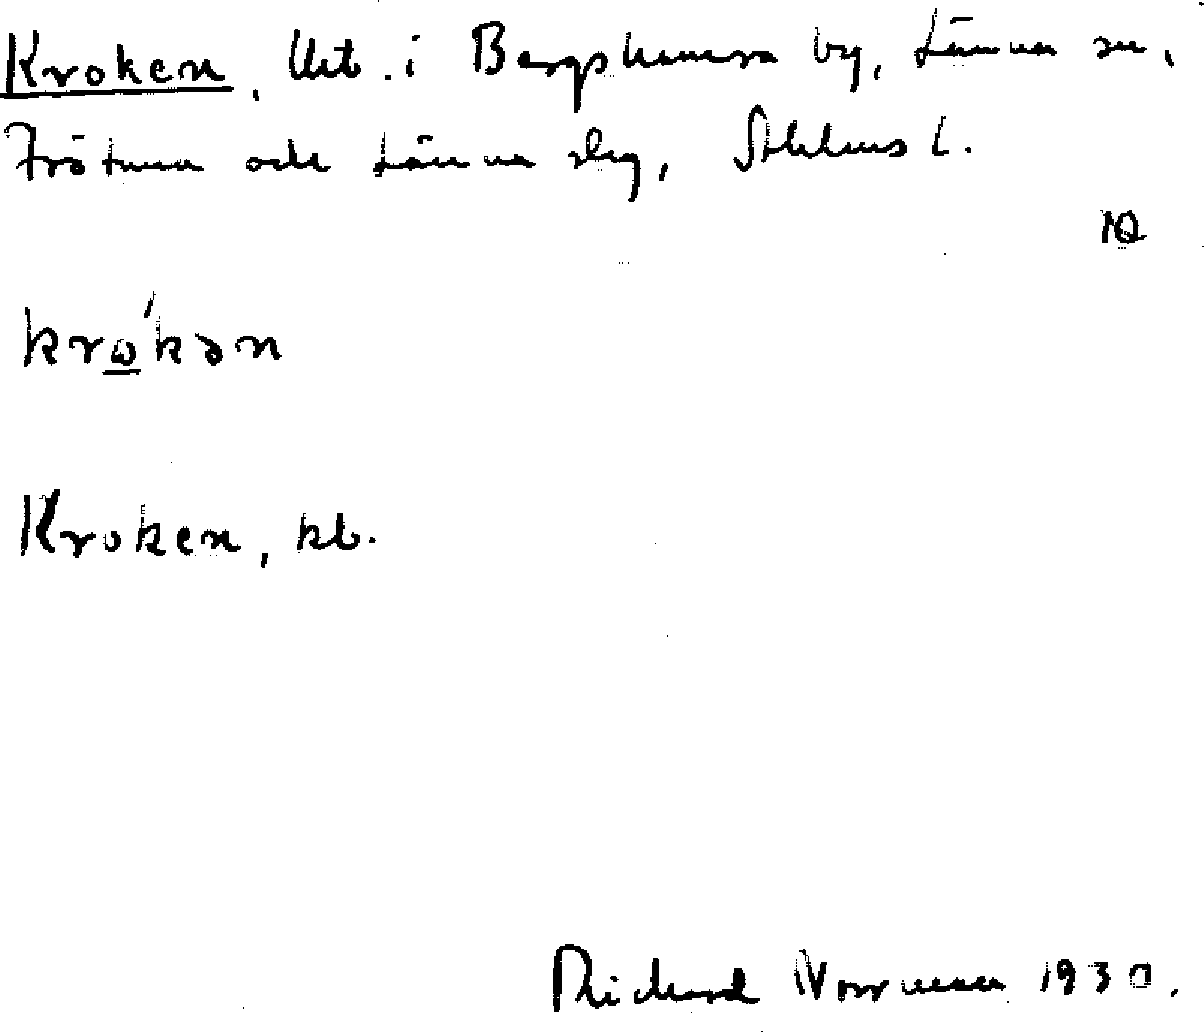 Kroken, lht. i Bergshamra by, Länna sn,
Frötuna och Länna slg, Sthlms l.
kro̲'kən
Kroken, kb.
Richard Norrman 1930.